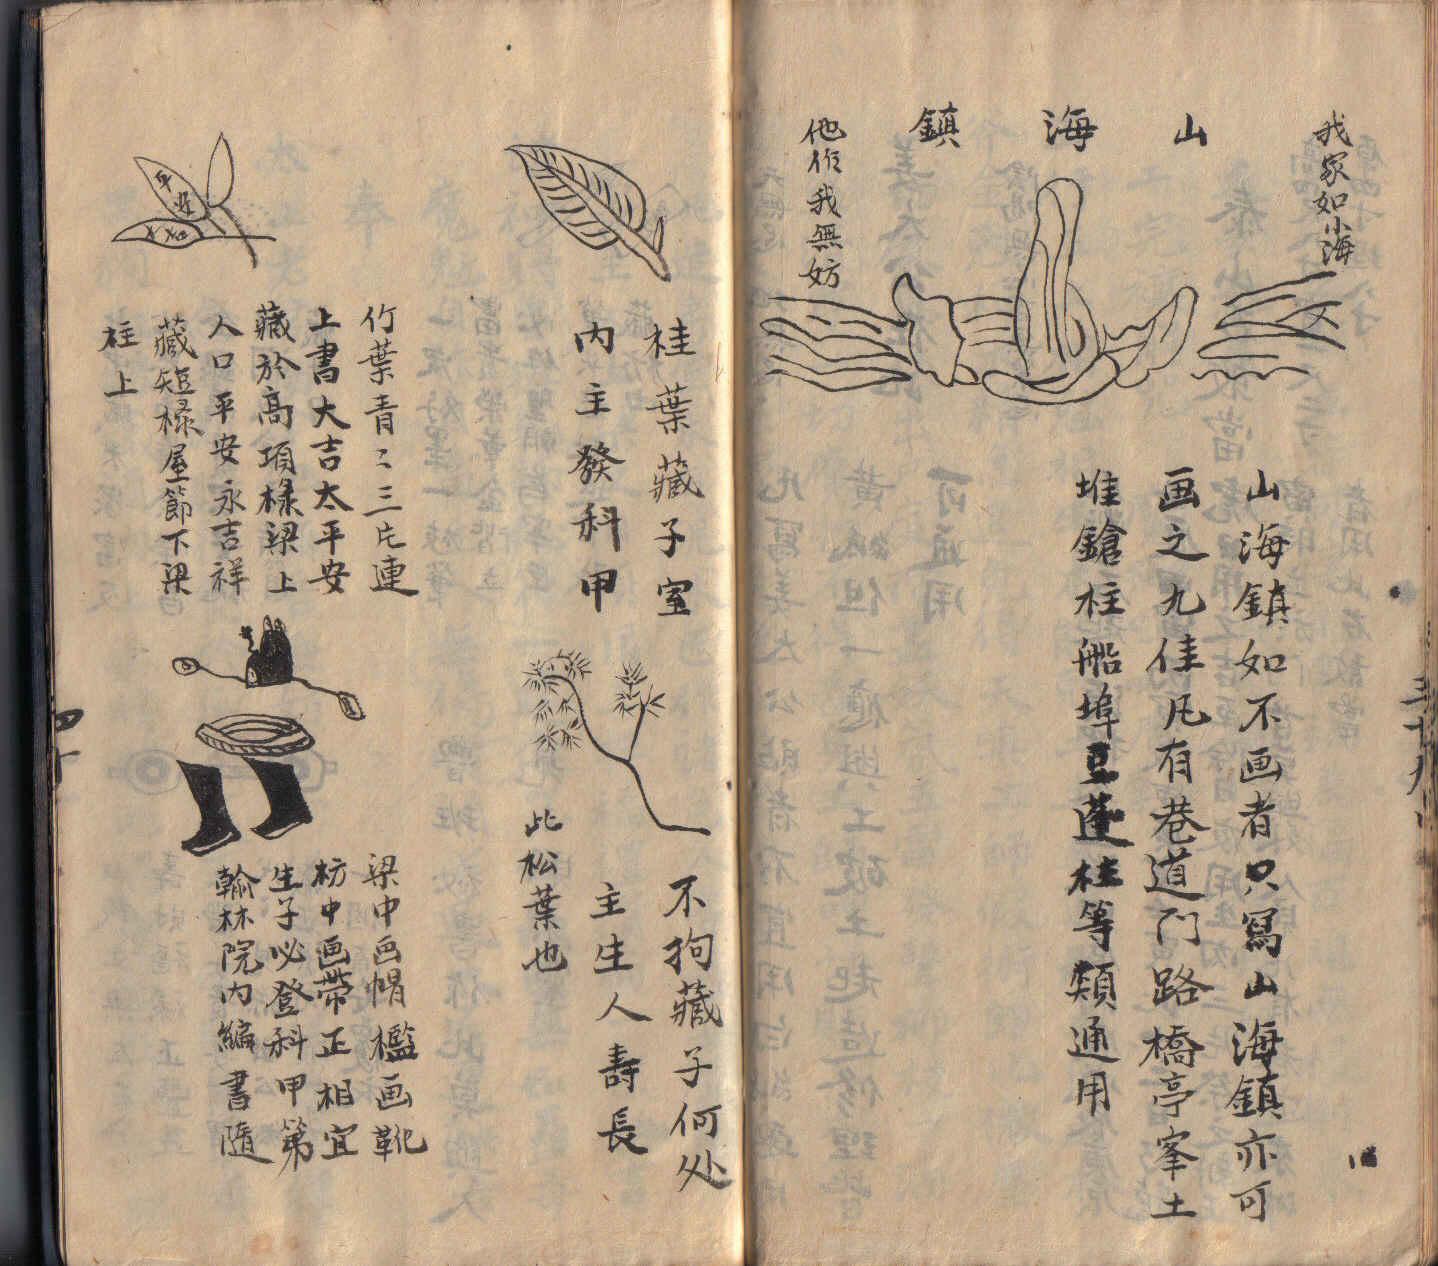 山海鎮
我家如山海
他作我無妨
山海鎮如不画者只寫山海鎮亦可
画之尤佳凡有巷道門路橋亭峯土
堆鎗柱船埠豆蓬柱等類通用
三十九
桂葉藏子室
内主發科甲
不拘藏子何处
主生人壽長
此松葉也
竹葉青〻三片連
上書大吉太平安
藏於高項椽梁上
人口平安永吉祥
藏短椽屋節下梁
柱上
平安
太
梁中画帽檻画靴
枋中画帶正相宜
生子必登科甲第
翰林院内編書隨
四十